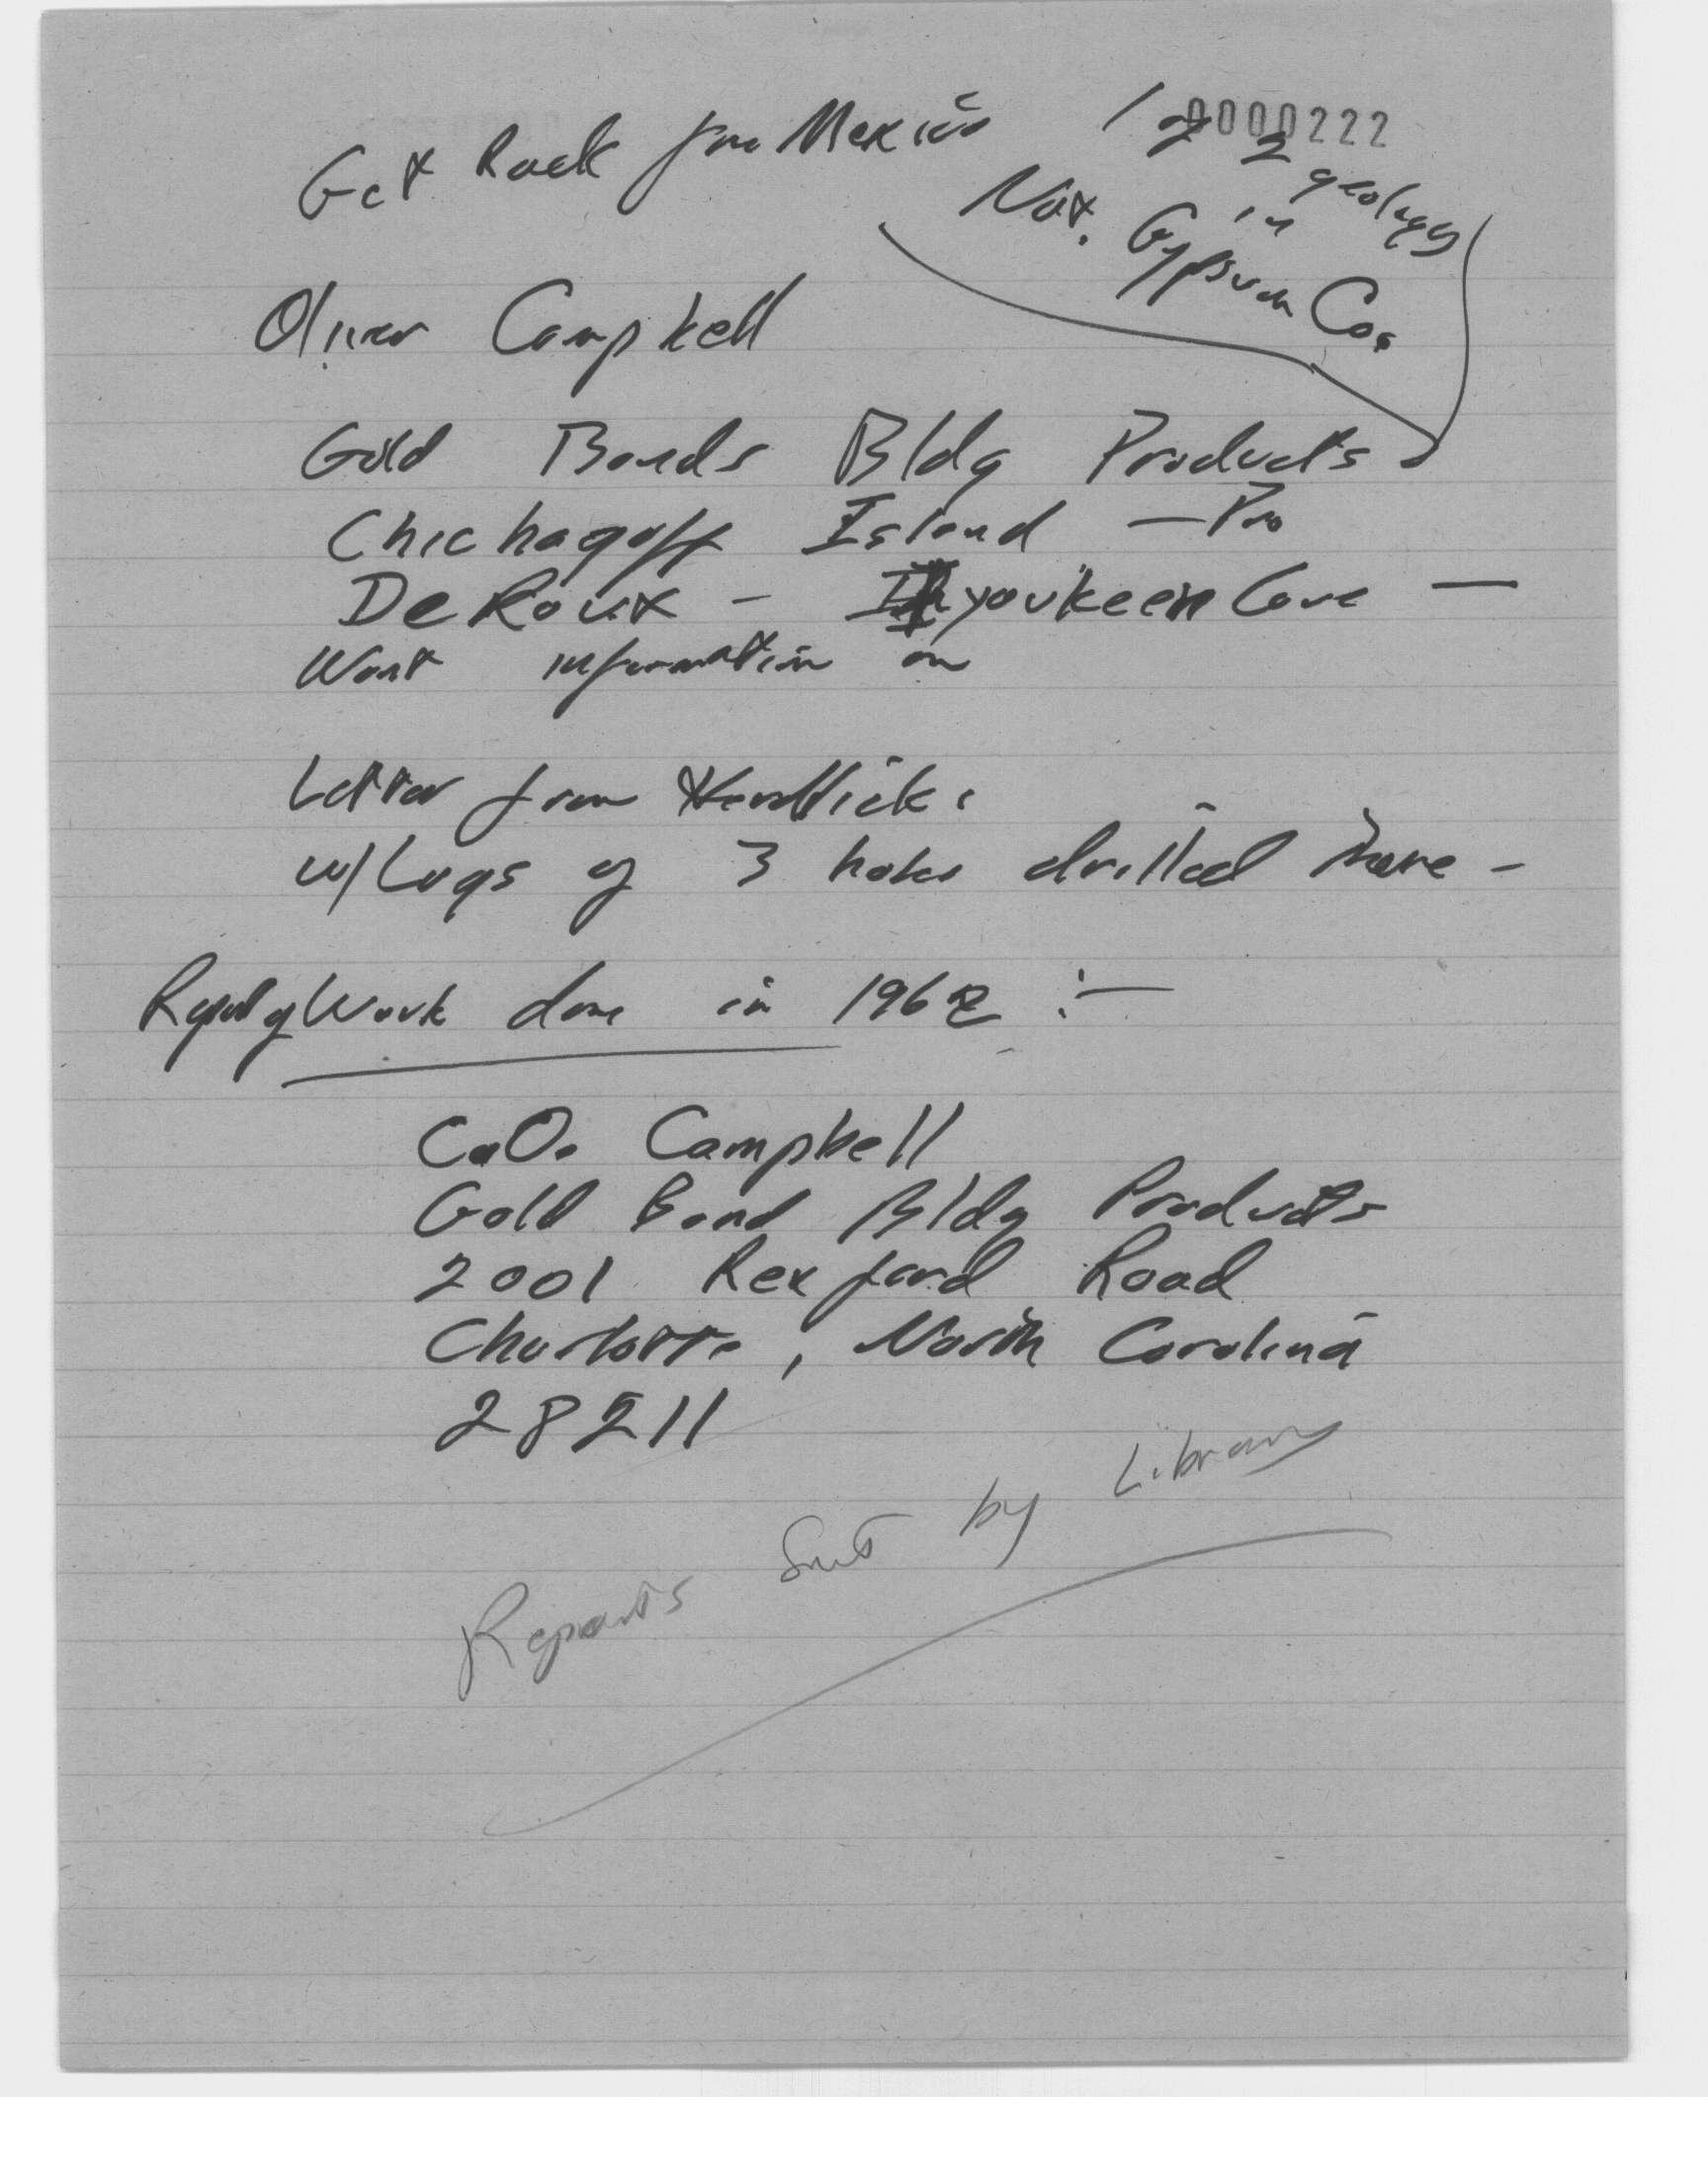 0000222
Get Rock from Mexico
1 of 2 geology
in
Nat. Gypsum Co.
Oliver Campbell
Gold Bonds Bldg Products
Chichagoff Island — Pro
De Roux - Iyoukeen Cove —
Want information on
Letter from
w/ Logs of 3 holes drilled there -
Work done in 1962 :—
C.O. Campbell
Gold Bond Bldg Products
2001 Rexford Road
Charlotte, North Carolina
28211
Reports sent by Library